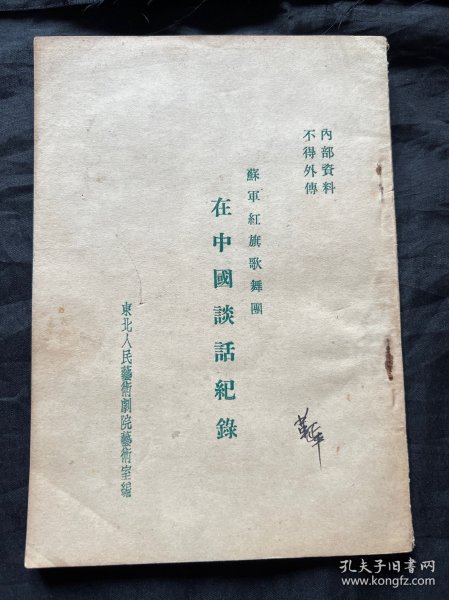 內部資料
不得外傳
蘇軍紅旗歌舞團
在中國談話紀錄
東北人民藝術劇院藝術室編
孔夫子旧书网
www.kongfz.com